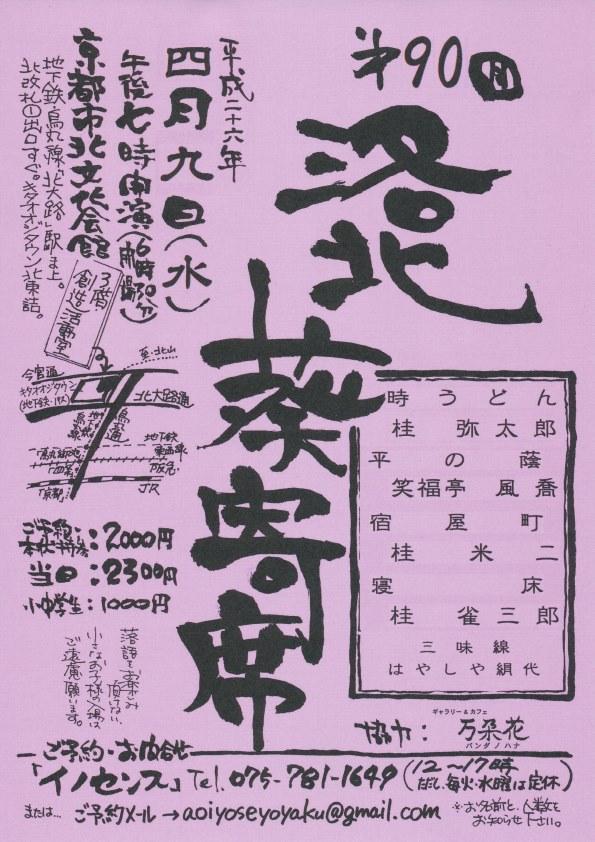 第90回
洛北
葵寄席
平成二十六年
四月九日(水)
午後七時開演(6時30分開場)
京都市北文化会館
3階・創造活動室
地下鉄・烏丸線「北大路」駅真上。
北改札①出口すぐ。キタオオジタウン北東詰。
至・北山
今宮通
キタオオジタウン
(地下鉄・バス)
北大路通
烏丸通
地下鉄
烏丸線
地下鉄
東西線
「烏丸御池」
「四条」
阪急
「京都」
JR
時うどん
桂 弥太郎
平の蔭
笑福亭 風喬
宿屋町
桂 米二
寝床
桂 雀三郎
三味線
はやしや絹代
ご予約・
本状ご持参:2000円
当日:2300円
小中学生:1000円
落語をお楽しみ
頂けない、
小さなお子様の入場は
ご遠慮願います。
協力:
ギャラリー&カフェ
万朶花
バンダノハナ
ご予約・お問合せ
「イノセンス」Tel. 075-781-1649(12〜17時 だだし、毎火・水曜は定休)
または… ご予約メール→aoiyoseyoyaku@gmail.com
※お名前と、人数を
お知らせ下さい。